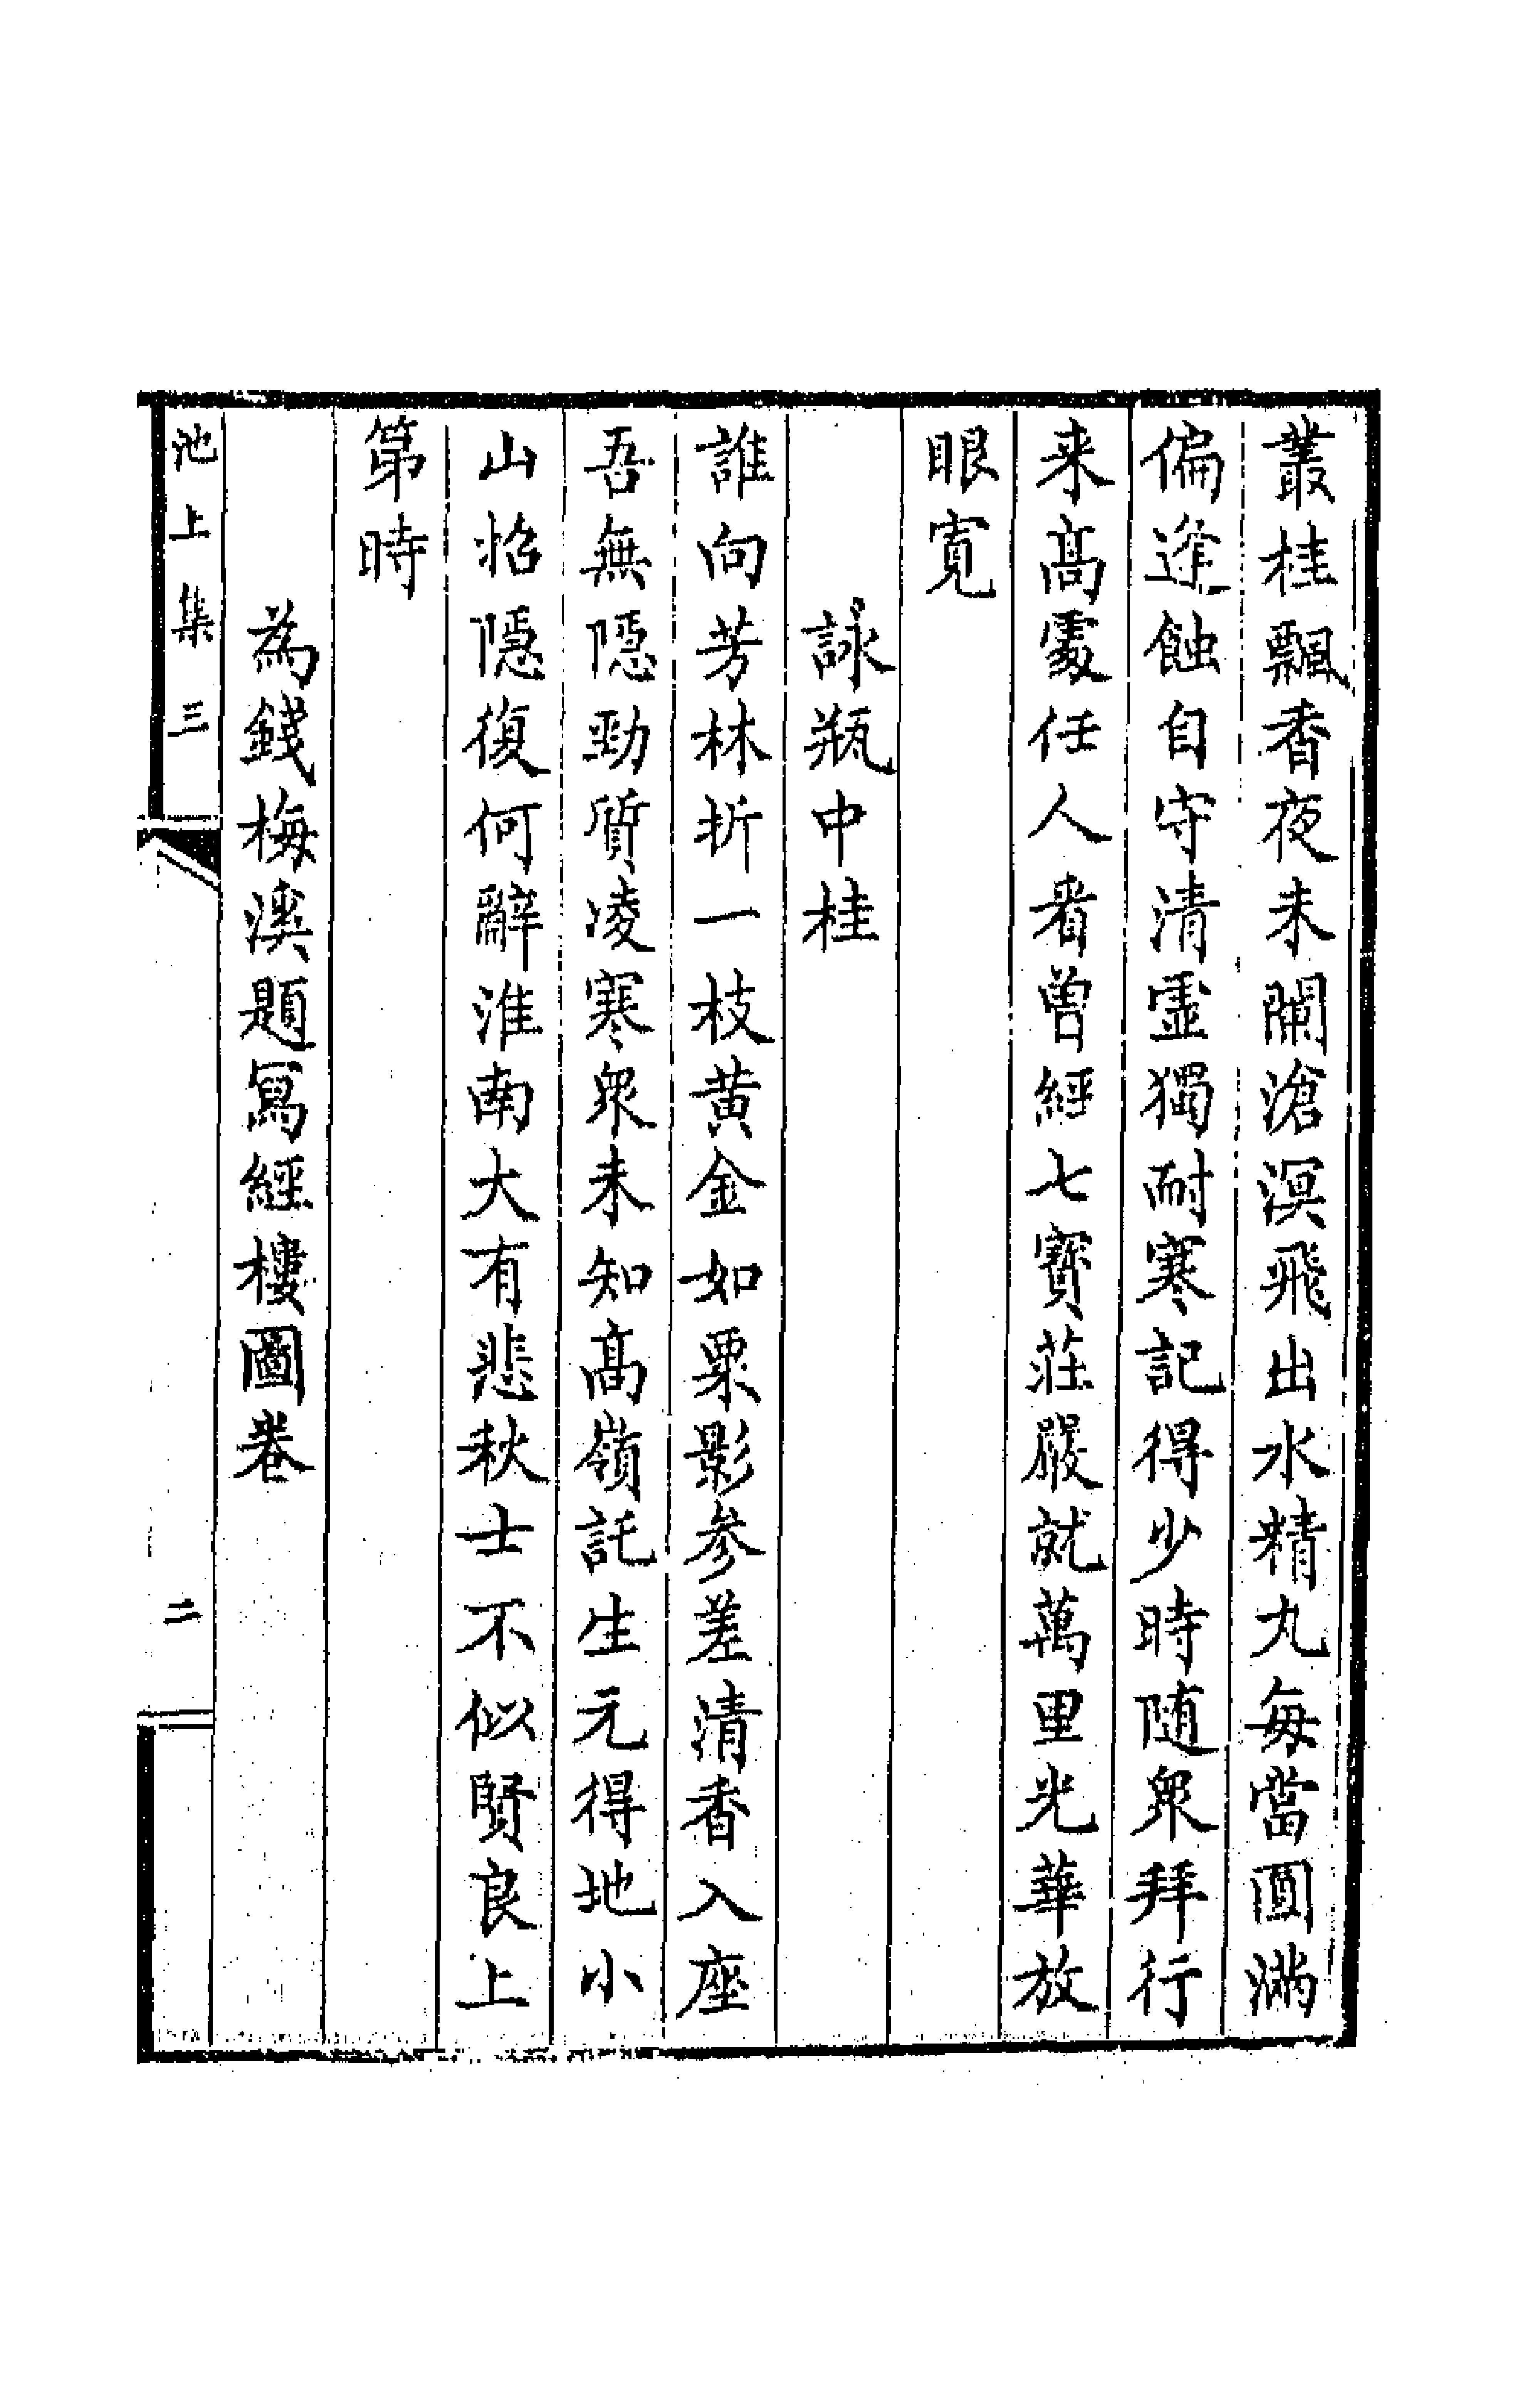 叢桂飄香夜未闌滄溟飛出水精丸每當圓滿
偏逢蝕自守清靈獨耐寒記得少時随衆拜行
来高處任人看曾經七寶莊嚴就萬里光華放
眼寛
詠瓶中桂
誰向芳林折一枝黄金如粟影參差清香入座
吾無隱勁質凌寒衆未知高嶺託生元得地小
山招隱復何辭淮南大有悲秋士不似賢良上
第時
為錢梅溪題寫經樓圖卷
池上集三
二